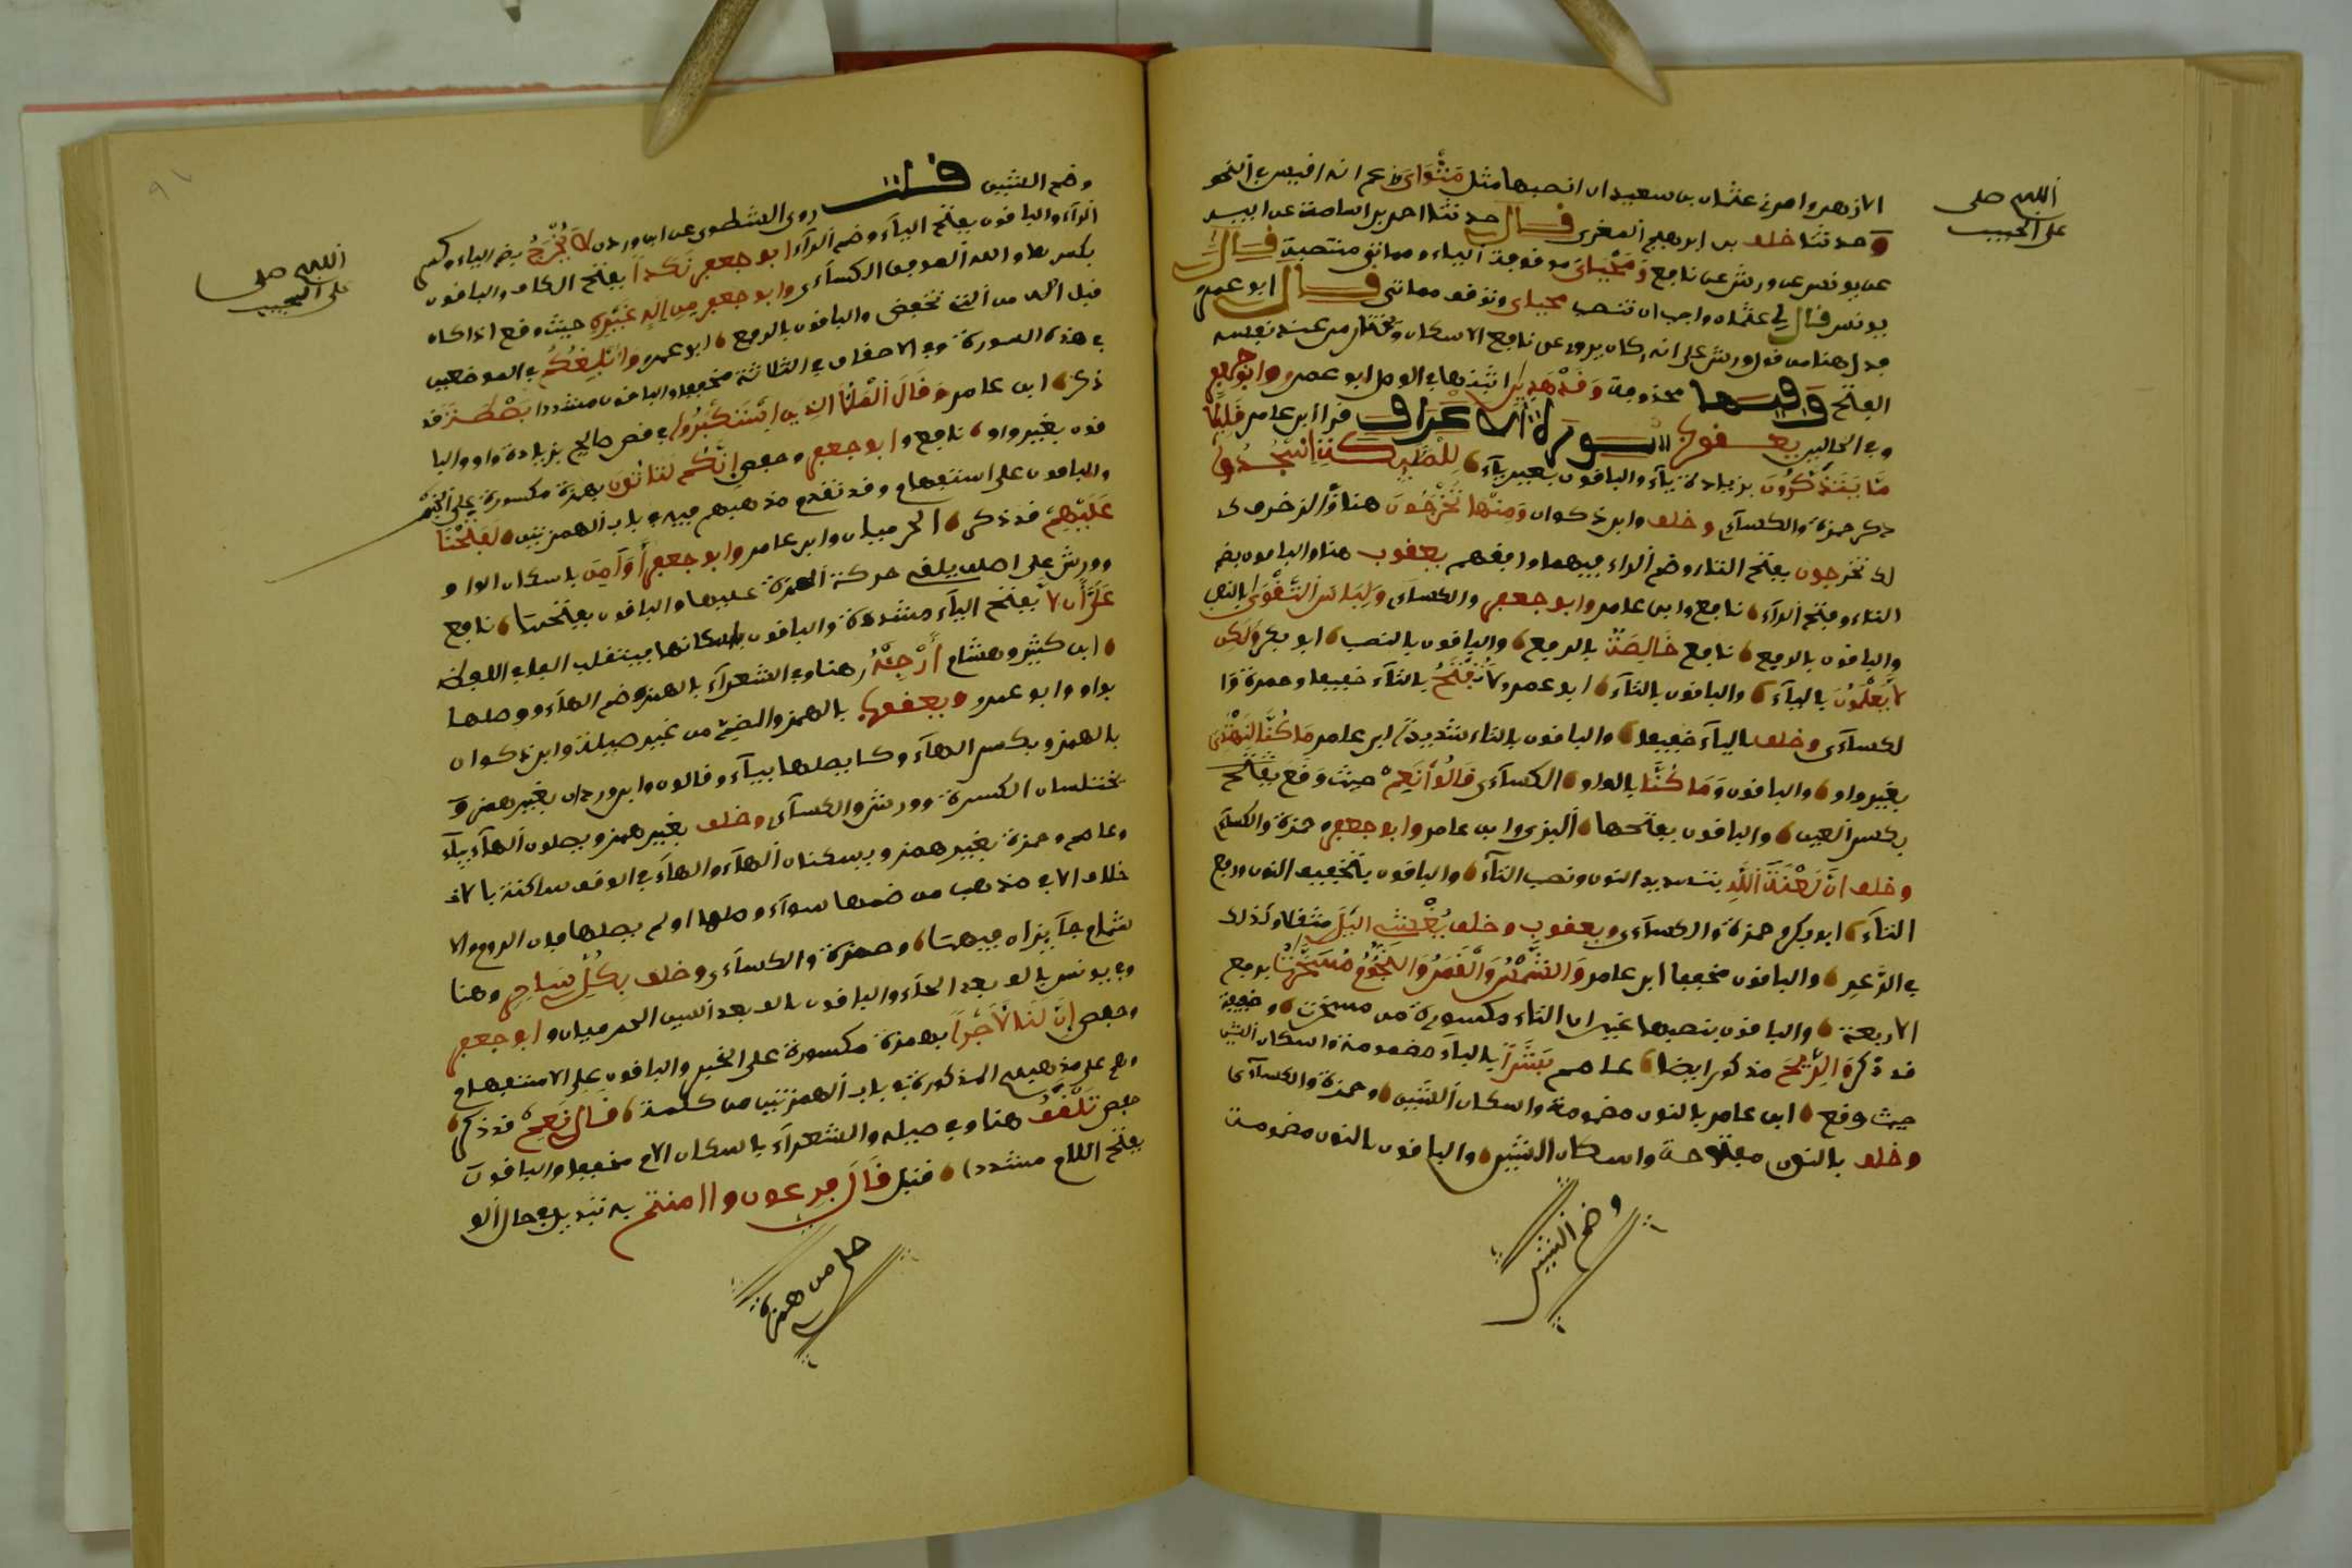 اللهم صل
على الحبيب
الازهر وامرني عثمان بن سعيد ان انصبها مثل مَثْوَايَ وزعم انه اقيس في النحو
وحدثنا خلف بن ابرهيم المغربي قال حدثنا احمد بن اسامة عن ابيه
عن يونس عن ورش عن نافع وَمَحْيَايْ موقوفة الياء ومماتي منتصبة قال
يونس قال لي عثمان واحب ان تنصب محياي وتوقف مماتي قال ابو عمرو
فدل هذا من قول ورش على انه كان يروي عن نافع الاسكان ويختار من عند نفسه
الفتح وفيها محذوفة وَقَدْ هَدَيٰنِ اثبتها في الوصل ابو عمرو وابو جعفر
وفي الحالين يعقوب سورة الاعراف قرا ابن عامر قَلِيلًا
مَّا يَتَذَكَّرُونَ بزيادة ياء والباقون بغير ياء لِلْمَلَٰئِكَةِ اسْجُدُوا
ذكر حمزة والكساءي وخلف وابن ذكوان وَمِنْهَا تَخْرُجُونَ هنا وفي الزخرف ك
لك تخرجون بفتح التاء وضم الراء فيهما وافقهم يعقوب هنا والباقون بضم
التاء وفتح الراء نافع وابن عامر وابو جعفر والكساءي وَلِبَاسَ التَّقْوَىٰ بالنصب
والباقون بالرفع نافع خَالِصَةٌ بالرفع والباقون بالنصب ابو بكر وَلَٰكِن
لَّا يَعْلَمُونَ بالياء والباقون بالتاء ابو عمرو لَا تُفْتَحُ بالتاء خفيفا وحمزة وا
لكساءي وخلف بالياء خفيفا والباقون بالتاء شديدا ابن عامر مَا كُنَّا لِنَهْتَدِيَ
بغير واو والباقون وَمَا كُنَّا بالواو الكساءي قَالُوا نَعِمْ حيث وَقَعَ
بكسر العين والباقون بفتحها البزي وابن عامر وابو جعفر وحمزة والكساءي
وخلف انَّ لَعْنَةَ اللَّهِ بتشديد النون ونصب التاء والباقون بتخفيف النون ورفع
التاء ابو بكر وحمزة والكساءي ويعقوب وخلف يُغَشِّي الَّيْلَ مثقلا وكذلك
في الرَّعد والباقون مخففا ابن عامر وَالشَّمْسُ وَالْقَمَرُ وَالنُّجُومُ مُسَخَّرَٰتٌ برفع
الاربعة والباقون بنصبها غير ان التاء مكسورة من مسخرت وخفية
قد ذكر الرِّيحَ مذكور ايضا عاصم بُشْرًا بالباء مضمومة واسكان الشين
حيث وقع ابن عامر بالنون مضمومة واسكان الشين وحمزة والكساءي
وخلف بالنون مفتوحة واسكان الشين والباقون بالنون مضمومة
وضم الشين
اللهم صل
على الحبيب
وضم الشين قلت روى الشطوي عن ابن وردان لَا يُخْرِجُ بضم الياء وكسر
الراء والباقون بفتح الياء وضم الراء ابو جعفر نَكَدًا بفتح الكاف والباقون
بكسرها والله الموفق الكساءي وابو جعفر مِنِ الَٰهٍ غَيْرِهِ حيث وقع اذا كان
قبل اله من التي تخفض والباقون بالرفع ابو عمرو وَأُبْلِغُكُمْ في الموضعين
في هذه السورة وفي الاحقاف في الثلاثة مخففا والباقون مشددا بَصْطَةً قد
ذكر ابن عامر وَقَالَ الْمَلَأُ الَّذِينَ اسْتَكْبَرُوا في قصة صالح بزيادة واو والبا
قون بغير واو نافع وابو جعفر وحفص إِنَّكُمْ لَتَاتُونَ بهمزة مكسورة على الخبر
والباقون على استفهام وقد تقدم مذهبهم فيه في باب الهمزتين لَفَتَحْنَا
عَلَيْهِم قد ذكر الحرميان وابن عامر وابو جعفر أَوْ أَمِنَ باسكان الواو
وورش على اصله يلقي حركة الهمزة عليها والباقون بفتحها نافع
عَلَيَّ أَن لَّا بفتح الياء مشددة والباقون باسكانها فتنقلب الفا في اللفظ
ابن كثير وهشام أَرْجِئْهُ هنا وفي الشعراء بالهمز وضم الهاء ووصلها
بواو وابو عمرو ويعقوب بالهمز والضم من غير صلة وابن ذكوان
بالهمز وبكسر الهاء ولا يصلها بياء وقالون وابن وردان بغير همز و
يختلسان الكسرة وورش والكساءي وخلف بغير همز ويصلون الهاء بياء
وعاصم وحمزة بغير همز ويسكنان الهاء والهاء في الوقف ساكنة بلا
خلاف الا في مذهب من ضمها سواء وصلها او لم يصلها فان الروم والا
شمام جايزان فيها وحمزة والكساءي وخلف بِكُلِّ سَحَّارٍ هنا
وفي يونس بالف بعد الحاء والباقون بالف بعد السين الحرميان وابو جعفر
وحفص إِنَّ لَنَا لَأَجْرًا بهمزة مكسورة على الخبر والباقون على الاستفهام
وهم على مذهبهم المذكورة في باب الهمزتين من كلمة قَالَ نَعِمْ قد ذكر
حفص تَلْقَفُ هنا وفي طه والشعراء باسكان اللام مخففا والباقون
بفتح اللام مشددا قنبل قَالَ فِرْعَوْنُ وامنتم به تبديل في حال الو
صل من همزة